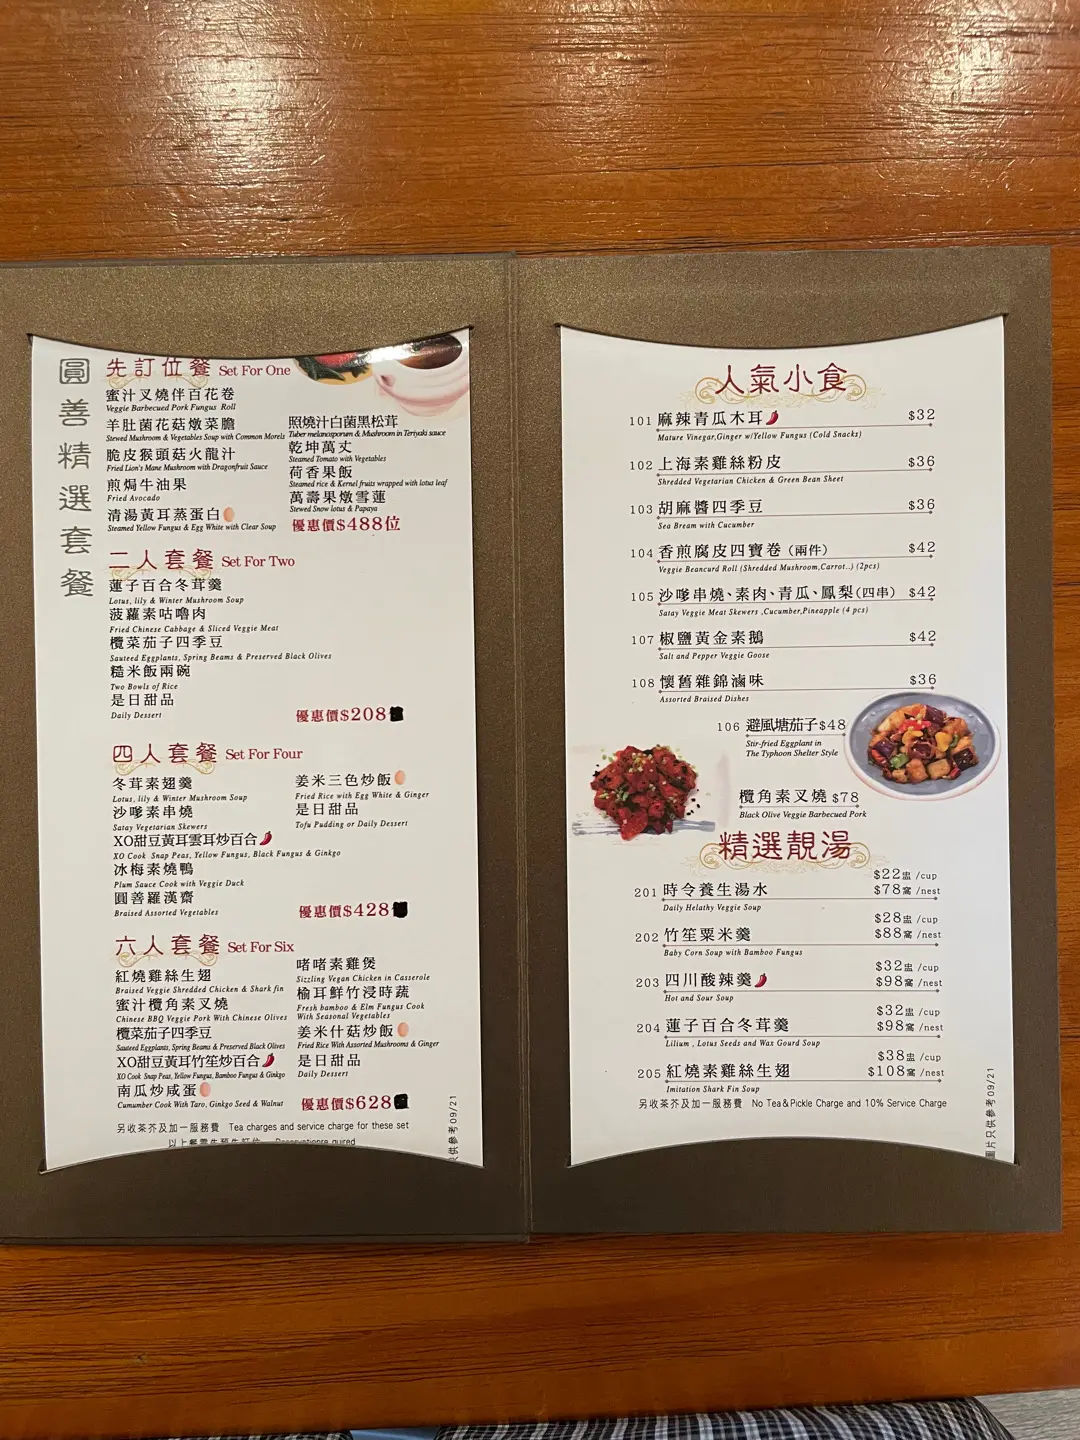 圓善精選套餐
先訂位餐 Set For One
蜜汁叉燒伴百花卷
Veggie Barbecued Pork Fungus Roll
羊肚菌花菇燉菜膽
Stewed Mushroom & Vegetables Soup with Common Morels
脆皮猴頭菇火龍汁
Fried Lion's Mane Mushroom with Dragonfruit Sauce
煎焗牛油果
Fried Avocado
清湯黃耳蒸蛋白
Steamed Yellow Fungus & Egg White with Clear Soup
照燒汁白菌黑松茸
Tuber melanosporum & Mushroom in Teriyaki sauce
乾坤萬丈
Steamed Tomato with Vegetables
荷香果飯
Steamed rice & Kernel fruits wrapped with lotus leaf
萬壽果燉雪蓮
Stewed Snow lotus & Papaya
優惠價$488位
二人套餐 Set For Two
蓮子百合冬茸羹
Lotus, lily & Winter Mushroom Soup
菠蘿素咕嚕肉
Fried Chinese Cabbage & Sliced Veggie Meat
欖菜茄子四季豆
Sauteed Eggplants, Spring Beams & Preserved Black Olives
糙米飯兩碗
Two Bowls of Rice
是日甜品
Daily Dessert
優惠價$208
四人套餐 Set For Four
冬茸素翅羹
Lotus, lily & Winter Mushroom Soup
沙嗲素串燒
Satay Vegetarian Skewers
XO甜豆黃耳雲耳炒百合
XO Cook Snap Peas, Yellow Fungus, Black Fungus & Ginkgo
冰梅素燒鴨
Plum Sauce Cook with Veggie Duck
圓善羅漢齋
Braised Assorted Vegetables
姜米三色炒飯
Fried Rice with Egg White & Ginger
是日甜品
Tofu Pudding or Daily Dessert
優惠價$428
六人套餐 Set For Six
紅燒雞絲生翅
Braised Veggie Shredded Chicken & Shark fin
蜜汁欖角素叉燒
Chinese BBQ Veggie Pork With Chinese Olives
欖菜茄子四季豆
Sauteed Eggplants, Spring Beams & Preserved Black Olives
XO甜豆黃耳竹笙炒百合
XO Cook Snap Peas, Yellow Fungus, Bamboo Fungus & Ginkgo
南瓜炒咸蛋
Cumumber Cook With Taro, Ginkgo Seed & Walnut
啫啫素雞煲
Sizzling Vegan Chicken in Casserole
榆耳鮮竹浸時蔬
Fresh bamboo & Elm Fungus Cook
With Seasonal Vegetables
姜米什菇炒飯
Fried Rice With Assorted Mushrooms & Ginger
是日甜品
Daily Dessert
優惠價$628
另收茶芥及加一服務費 Tea charges and service charge for these set
只供參考 09/21
人氣小食
101 麻辣青瓜木耳 $32
Mature Vinegar,Ginger w/Yellow Fungus (Cold Snacks)
102 上海素雞絲粉皮 $36
Shredded Vegetarian Chicken & Green Bean Sheet
103 胡麻醬四季豆 $36
Sea Bream with Cucumber
104 香煎腐皮四寶卷（兩件） $42
Veggie Beancurd Roll (Shredded Mushroom,Carrot..) (2pcs)
105 沙嗲串燒、素肉、青瓜、鳳梨(四串) $42
Satay Veggie Meat Skewers ,Cucumber,Pineapple (4 pcs)
107 椒鹽黃金素鵝 $42
Salt and Pepper Veggie Goose
108 懷舊雜錦滷味 $36
Assorted Braised Dishes
106 避風塘茄子 $48
Stir-fried Eggplant in
The Typhoon Shelter Style
欖角素叉燒 $78
Black Olive Veggie Barbecued Pork
精選靚湯
$22盅 /cup
201 時令養生湯水 $78窩 /nest
Daily Helathy Veggie Soup
$28盅 /cup
202 竹笙粟米羹 $88窩 /nest
Baby Corn Soup with Bamboo Fungus
$32盅 /cup
203 四川酸辣羹 $98窩 /nest
Hot and Sour Soup
$32盅 /cup
204 蓮子百合冬茸羹 $98窩 /nest
Lilium , Lotus Seeds and Wax Gourd Soup
$38盅 /cup
205 紅燒素雞絲生翅 $108窩 /nest
Imitation Shark Fin Soup
另收茶芥及加一服務費 No Tea＆Pickle Charge and 10% Service Charge
圖片只供參考 09/21